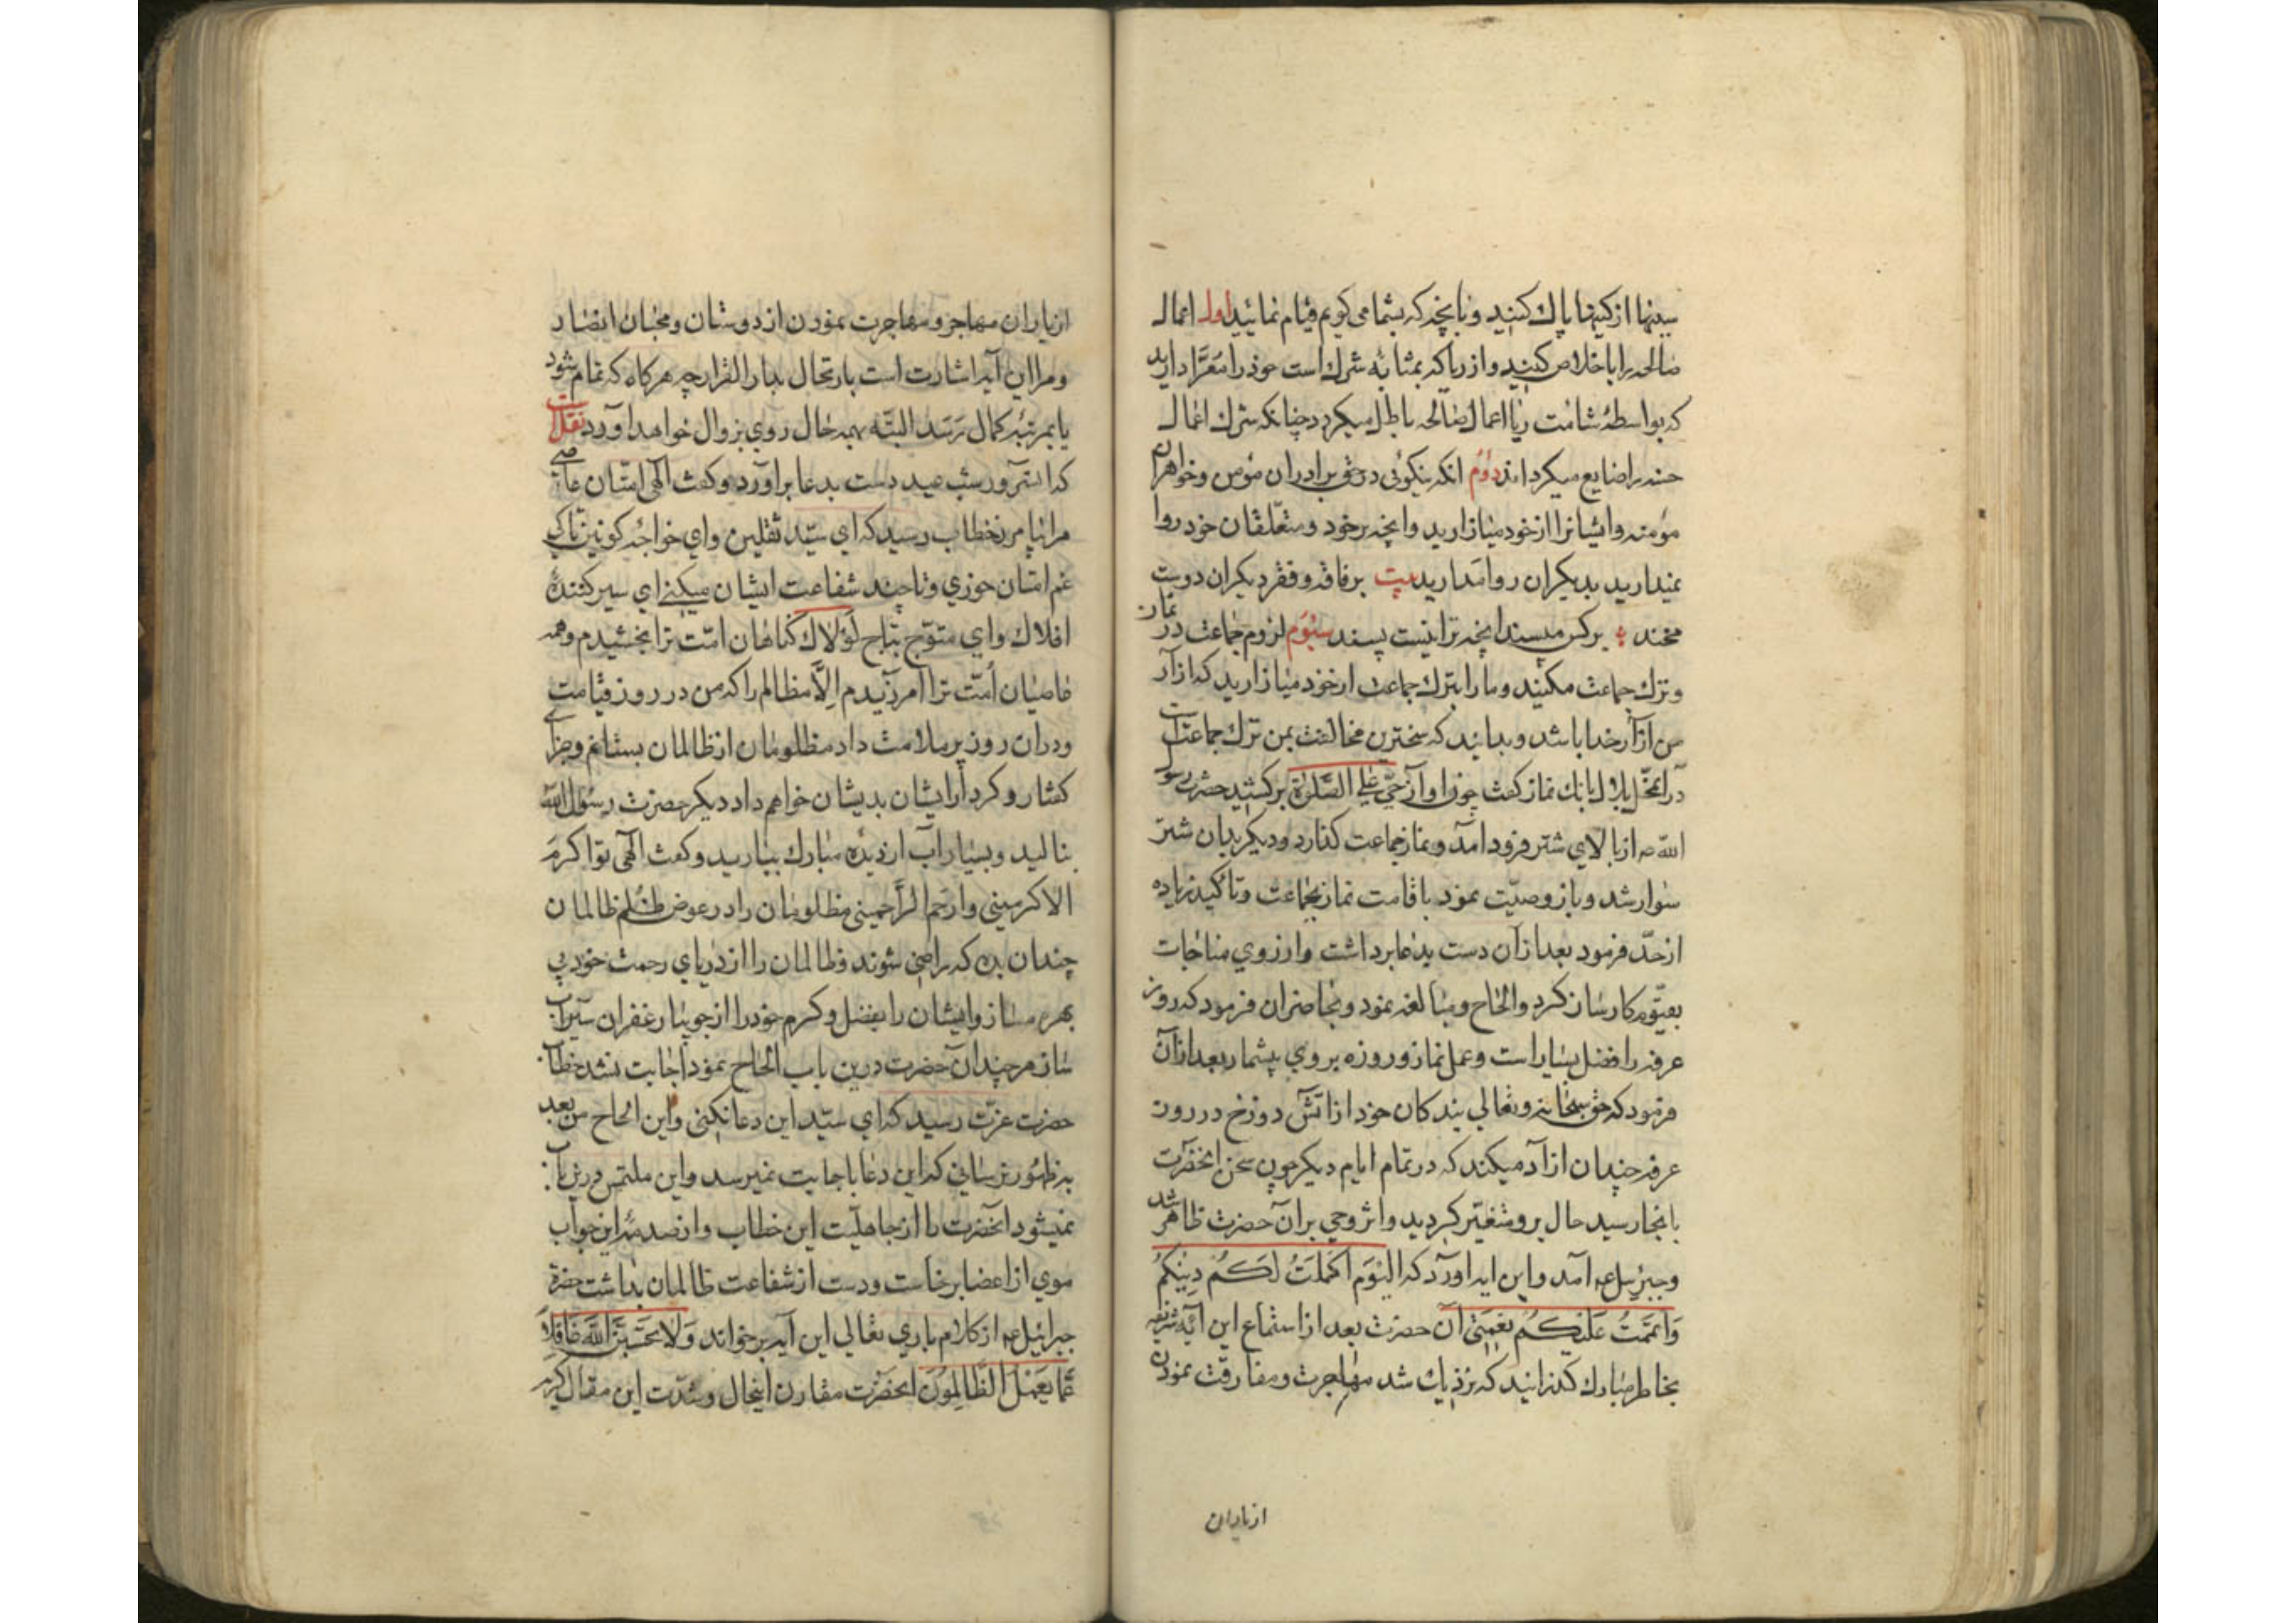 سینها از کینها پاك کنید و بآنچه که بشما می کویم قیام نمائید اول اعمال
صالحه را باخلاص کنید و از ریا که بمثابه شرك است خود را مُعَرّا دارید
که بواسطهٔ شامت ریا اعمال صالحه باطل میکردد چنانکه شرك اعمال
حسنه را ضایع میکرداند دوم آنکه نیکوئی در حق برادران مؤمن و خواهران
مؤمنه و ایشانرا از خود میازارید و آنچه بر خود و متعلّقان خود روا
نمیدارید بدیکران روا مدارید بیت بر فاقه و فقر دیکران دوست
مخند ؛ بر کس مپسند آنچه ترا نیست پسند سیوم لزوم جماعت در نماز
و ترك جماعت مکنید و ما را بترك جماعت از خود میازارید که آزار
من آزار خدا باشد و بدانید که سختترین مخالفت بمن ترك جماعتست
در آن محل بلال بانك نماز کفت چون او آواز حیّ علی الصَّلوة برکشید حضرت رسول
الله ص از بالای شتر فرود آمد و نماز جماعت کذارد و دیکر بدان شتر
سوار شد و باز وصیّت نمود باقامت نماز بجماعت و تاکید زیاده
از حدّ فرمود بعد از آن دست بدعا برداشت و از روی مناجات
بقیّوم کارساز کرد و الحاح و مبالغه نمود و بحاضران فرمود که روز
عرفه را فضل بسیار است و عمل نماز و روزه بروی بیشمار بعد از آن
فرمود که حق سبحانه و تعالی بندکان خود از آتش دوزخ در روز
عرفه چندان آزاد میکند که در تمام ایام دیکر چون سخن آنحضرت
باینجا رسید حال برو متغیّر کردید و اثر وحی بر آن حضرت ظاهر شد
و جبرئیل ع م آمد و این ایه آورد که الیَوَم اَکمَلتُ لَکُم دِینَکُم
وَاَتممَتُ عَلَیکُم نِعمَتی آن حضرت بعد از استماع این آیهٔ شریفه
بخاطر مبارك کذرانید که نزدیك شد مهاجرت و مفارقت نمودن
از یاران
از یاران مهاجر و مهاجرت نمودن از دوستان و محبّان انصار
و مرا این آیه اشارت است بارتحال بدار القرار چه هرکاه که تمام شود
یا بمرتبهٔ کمال رسد البتّه بهمه حال روی بزوال خواهد آورد نقلست
که آن سرور شب عید دست بدعا برآورد و کفت الهی امّتان عاصی
مرا بیامرز خطاب رسید که ای سیّد ثقلین و ای خواجهٔ کونین تا کی
غم امّتان خوری و تا چند شفاعت ایشان میکنی ای سیر کنندهٔ
افلاك و ای متوّج بتاج لَولاك کناهان امّت ترا بخشیدم و همه
عاصیان اُمّت ترا آمرزیدم اِلاّ مظالم را که من در روز قیامت
و در آن روز پر ملامت داد مظلومان از ظالمان بستانم و جزآء
کفتار و کردار ایشان بدیشان خواهم داد دیکر حضرت رسول الله
بنالید و بسیار آب از دیدهٔ مبارك ببارید و کفت الهی تو اکرمَ
الاکرمینی و ارحَم الرّاحمینی مظلومان را در عوض ظلم ظالمان
چندان بده که راضی شوند و ظالمان را از دریای رحمت خود بی
بهره مساز و ایشان را بفضل و کرم خود را از جویبار غفران سیراب
ساز هر چند آن حضرت درین باب الحاح نمود اجابت نشد خطاب
حضرت عزّت رسید که ای سیّد این دعا نکنی و این الحاح من بعد
بظهور نرسانی که این دعا باجابت نمیرسد و این ملتمس درین باب
نمیشود آنحضرت را از جاهلیّت این خطاب و از صدمهٔ این جواب
موی از اعضا برخاست و دست از شفاعت ظالمان بداشت حضرة
جبرائیل ع م از کلام باری تعالی این آیه بر خواند وَلا تحَسَبَنَّ اللّٰهَ غافِلاً
عَمّا یَعمَلُ الظّالِمُونَ آنحضرت مقارن اینحال و شدّت این مقال کریه